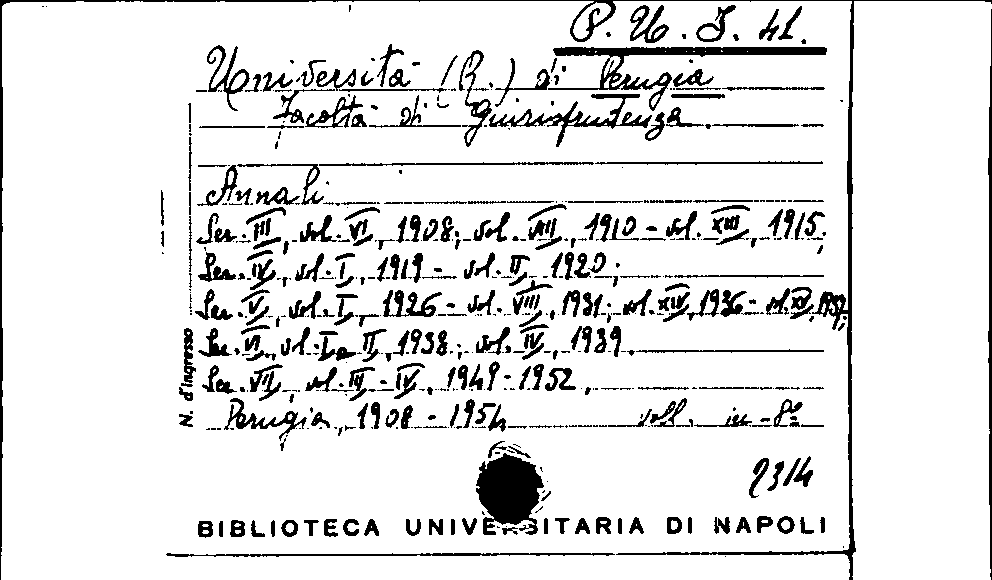 P. U. I. 41.
Università (R.) di Perugia
Facoltà di Giurisprudenza.
Annali
Ser. III, vol. VI, 1908; vol. VIII, 1910 - vol. XIII, 1915;
Ser. IV, vol. I, 1919 - vol. II, 1920;
Ser. V, vol. I, 1926 - vol. VIII, 1931; vol. XIV, 1936 - vol. XV, 1937;
Ser. VI, vol. I e II, 1938; vol. IV, 1939.
Ser. VII, vol. III - IV, 1949 - 1952.
Perugia, 1908 - 1954 voll. in -8º
N. d'ingresso
2314
BIBLIOTECA UNIVERSITARIA DI NAPOLI